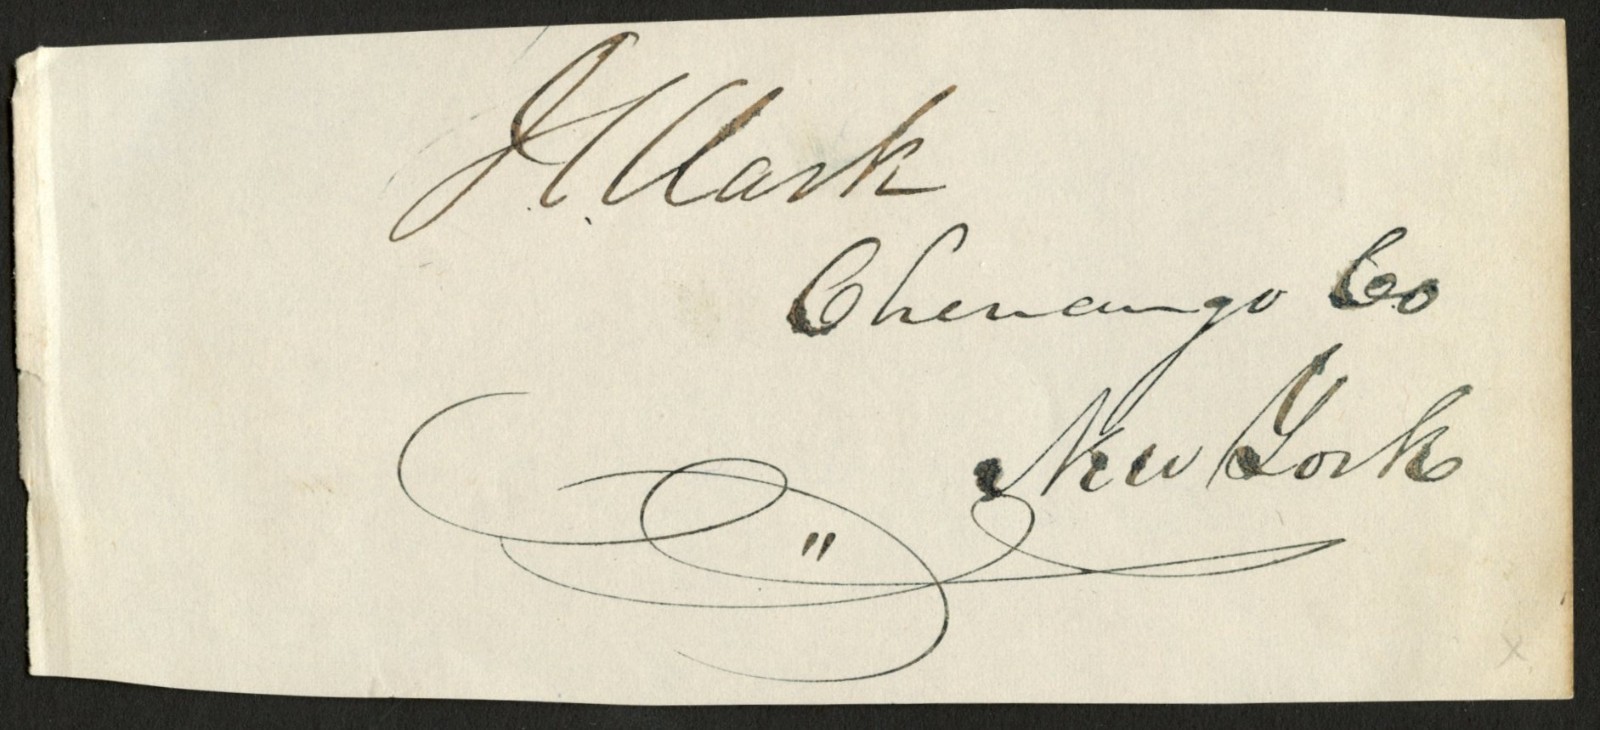 J C. Clark
Chenango Co
New York
"
x